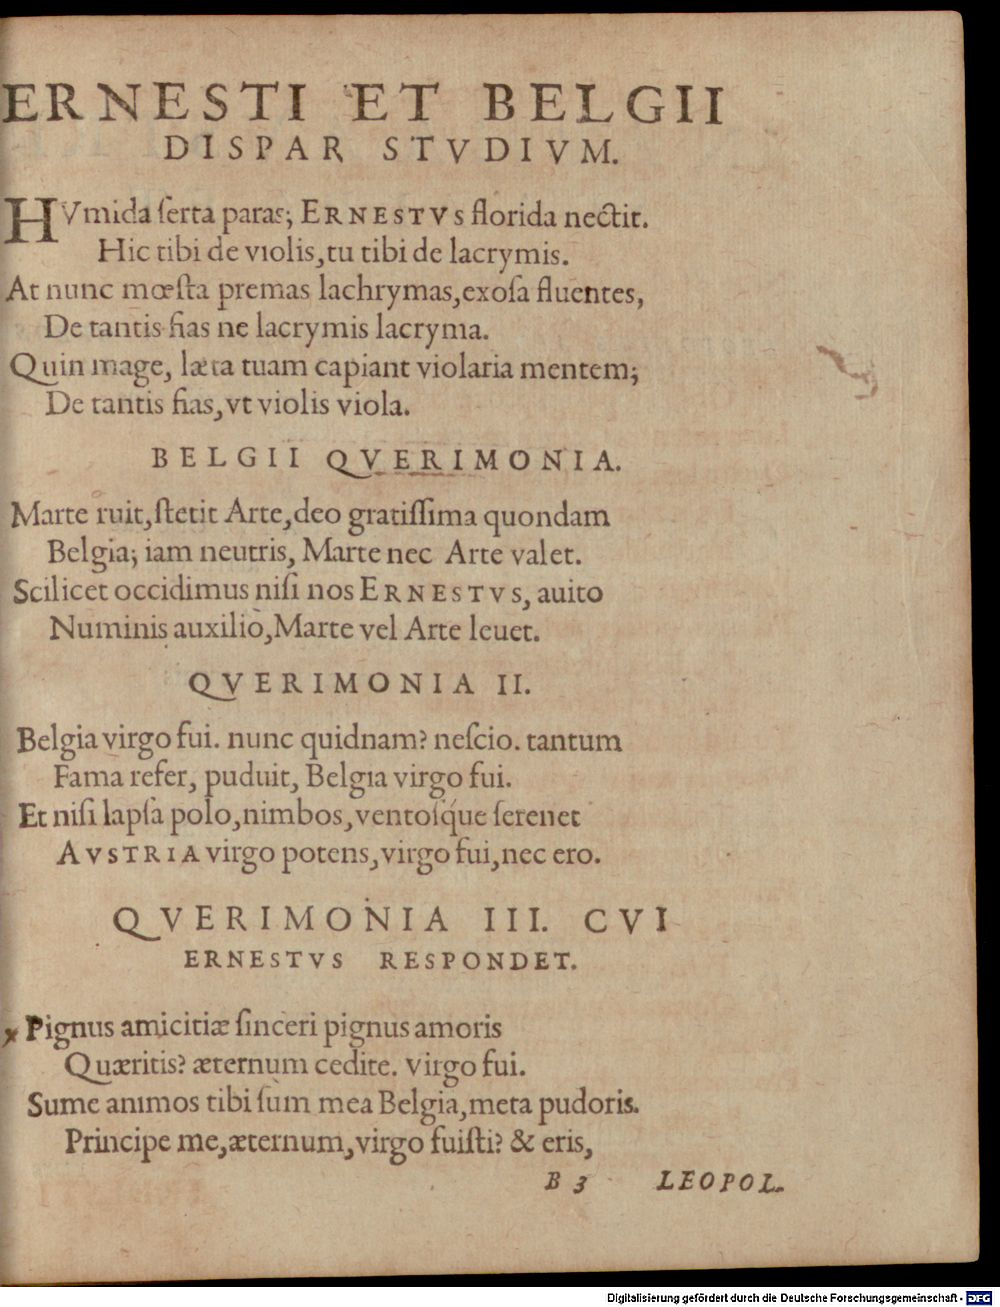 ERNESTI ET BELGII
DISPAR STVDIVM.
HVmida ſerta paras; ERNESTVS florida nectit.
Hic tibi de violis,tu tibi de lacrymis.
At nunc mœſta premas lachrymas,exoſa fluentes,
De tantis fias ne lacrymis lacryma.
Quin mage, læta tuam capiant violaria mentem;
De tantis fias,vt violis viola.
BELGII QVERIMONIA.
Marte ruit,ſtetit Arte,deo gratiſſima quondam
Belgia; iam neutris, Marte nec Arte valet.
Scilicet occidimus niſi nos ERNESTVS, auito
Numinis auxiliò,Marte vel Arte leuet.
QVERIMONIA II.
Belgia virgo fui. nunc quidnam? neſcio. tantum
Fama refer, puduit, Belgia virgo fui.
Et niſi lapſa polo,nimbos,ventoſq́ue ſerenet
AVSTRIA virgo potens,virgo fui,nec ero.
QVERIMONIA III. CVI
ERNESTVS RESPONDET.
Pignus amicitiæ ſinceri pignus amoris
Quæritis? æternum cedite. virgo fui.
Sume animos tibi ſum mea Belgia,meta pudoris.
Principe me,æternum,virgo fuiſti? & eris,
B 3 LEOPOL.
Digitalisierung gefördert durch die Deutsche Forschungsgemeinschaft - DFG